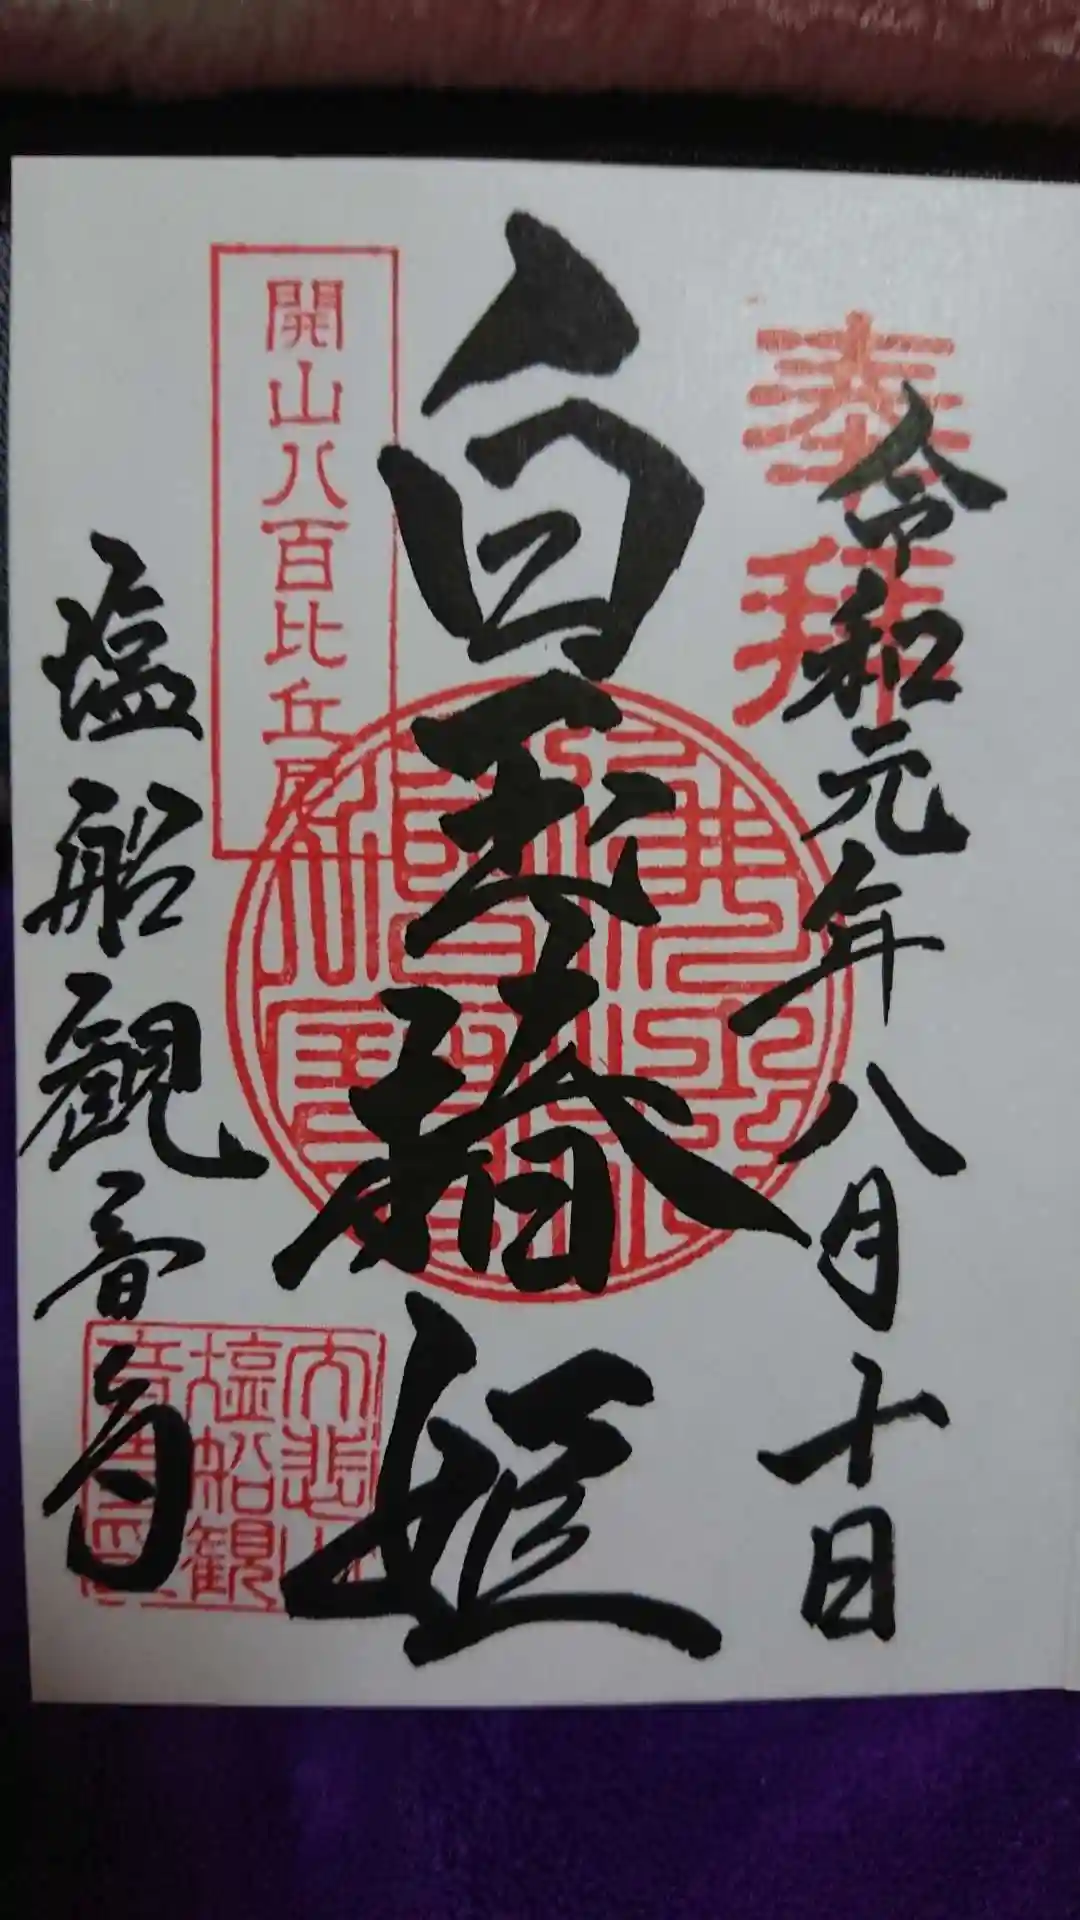 奉拝
令和元年八月十日
白玉椿姫
開山八百比丘尼
塩船観音寺
大悲山
塩船観
音寺印